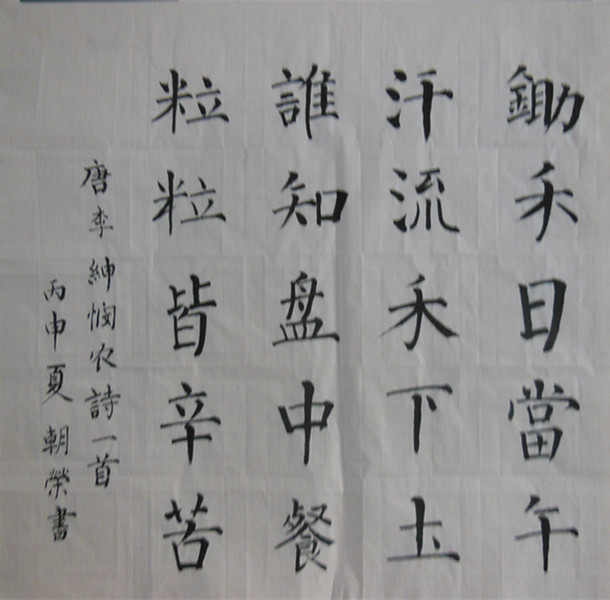 鋤禾日當午
汗流禾下土
誰知盘中餐
粒粒皆辛苦
唐李紳憫农詩一首
丙申夏朝榮書